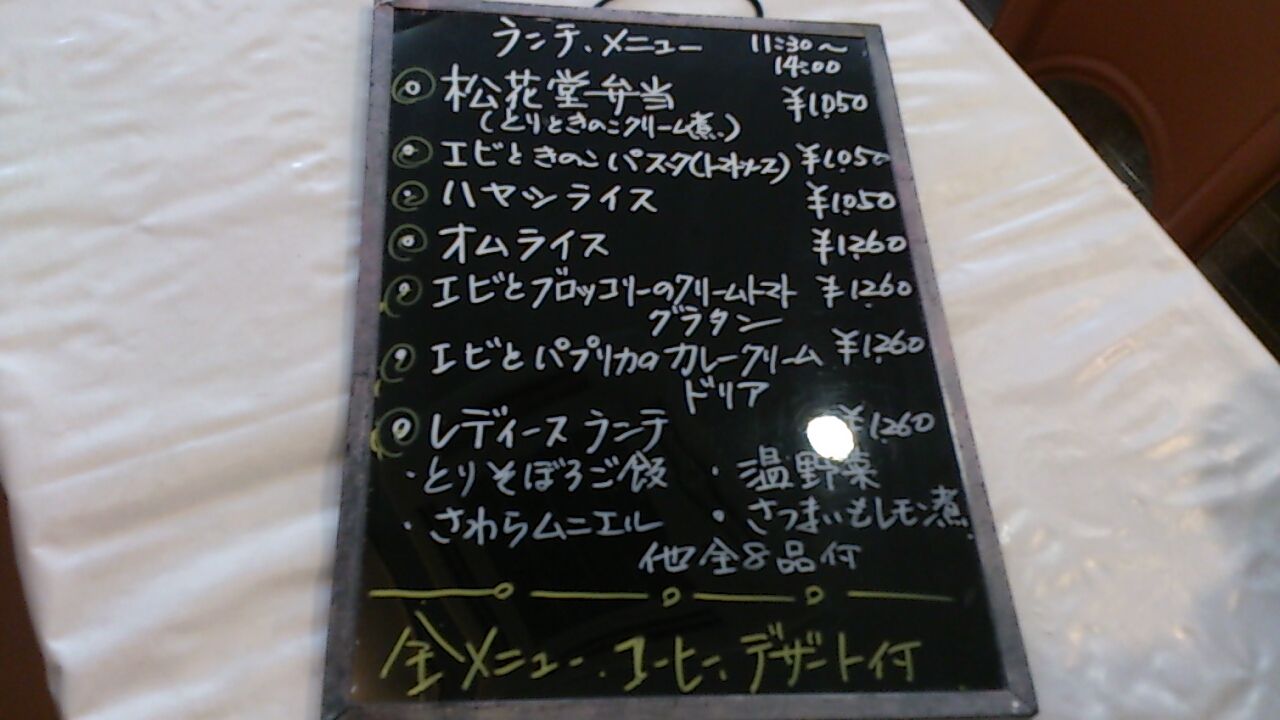 ランチ、メニュー 11:30〜
14:00
松花堂弁当 ¥1,050
(とりときのこクリーム煮)
エビときのこパスタ(トマトソース) ¥1,050
ハヤシライス ¥1,050
オムライス ¥1,260
エビとブロッコリーのクリームトマト ¥1,260
グラタン
エビとパプリカのカレークリーム ¥1,260
ドリア
レディースランチ ¥1,260
・とりそぼろご飯 ・温野菜
・さわらムニエル ・さつまいもレモン煮
他全8品付
全メニュー、コーヒー、デザート付